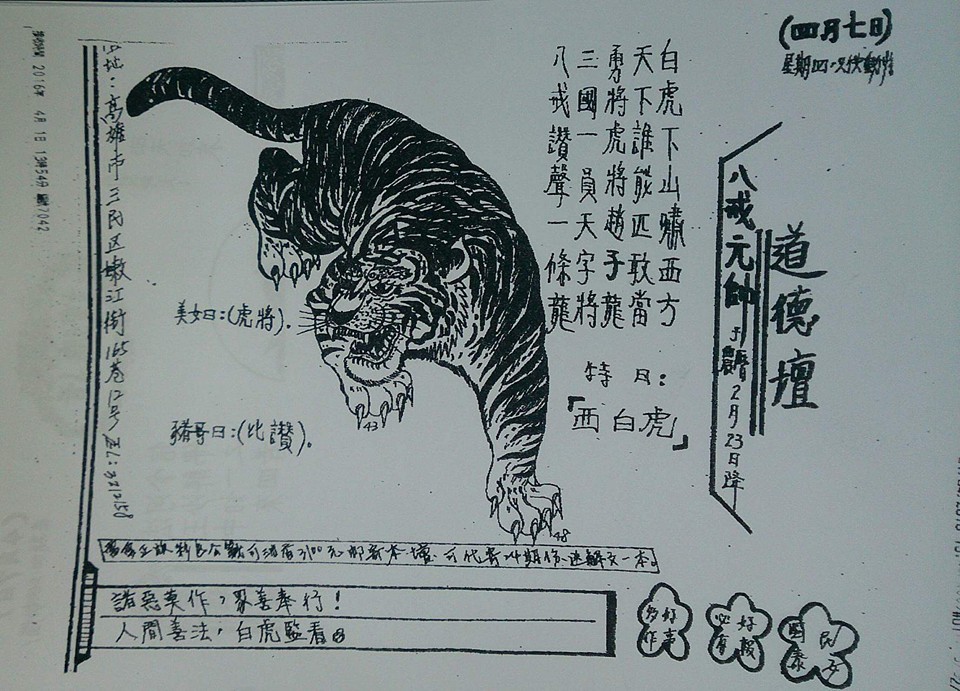 (四月七日)
道德壇
八戒元帥 于農曆2月23日降
白虎下山嘯西方
天下誰能匹敢當
勇將虎將趙子龍
三國一員天字將
八戒讚聲一條龍
特曰:
「西白虎」
美女曰:(虎將).
豬哥曰:(比讚).
43
48
址:高雄市三民区嫩江街165巷12号
2016年 4月 1日 15時54分
諸惡莫作,眾善奉行!
人間善法,白虎監看
好事多作
好報必有
國泰民安